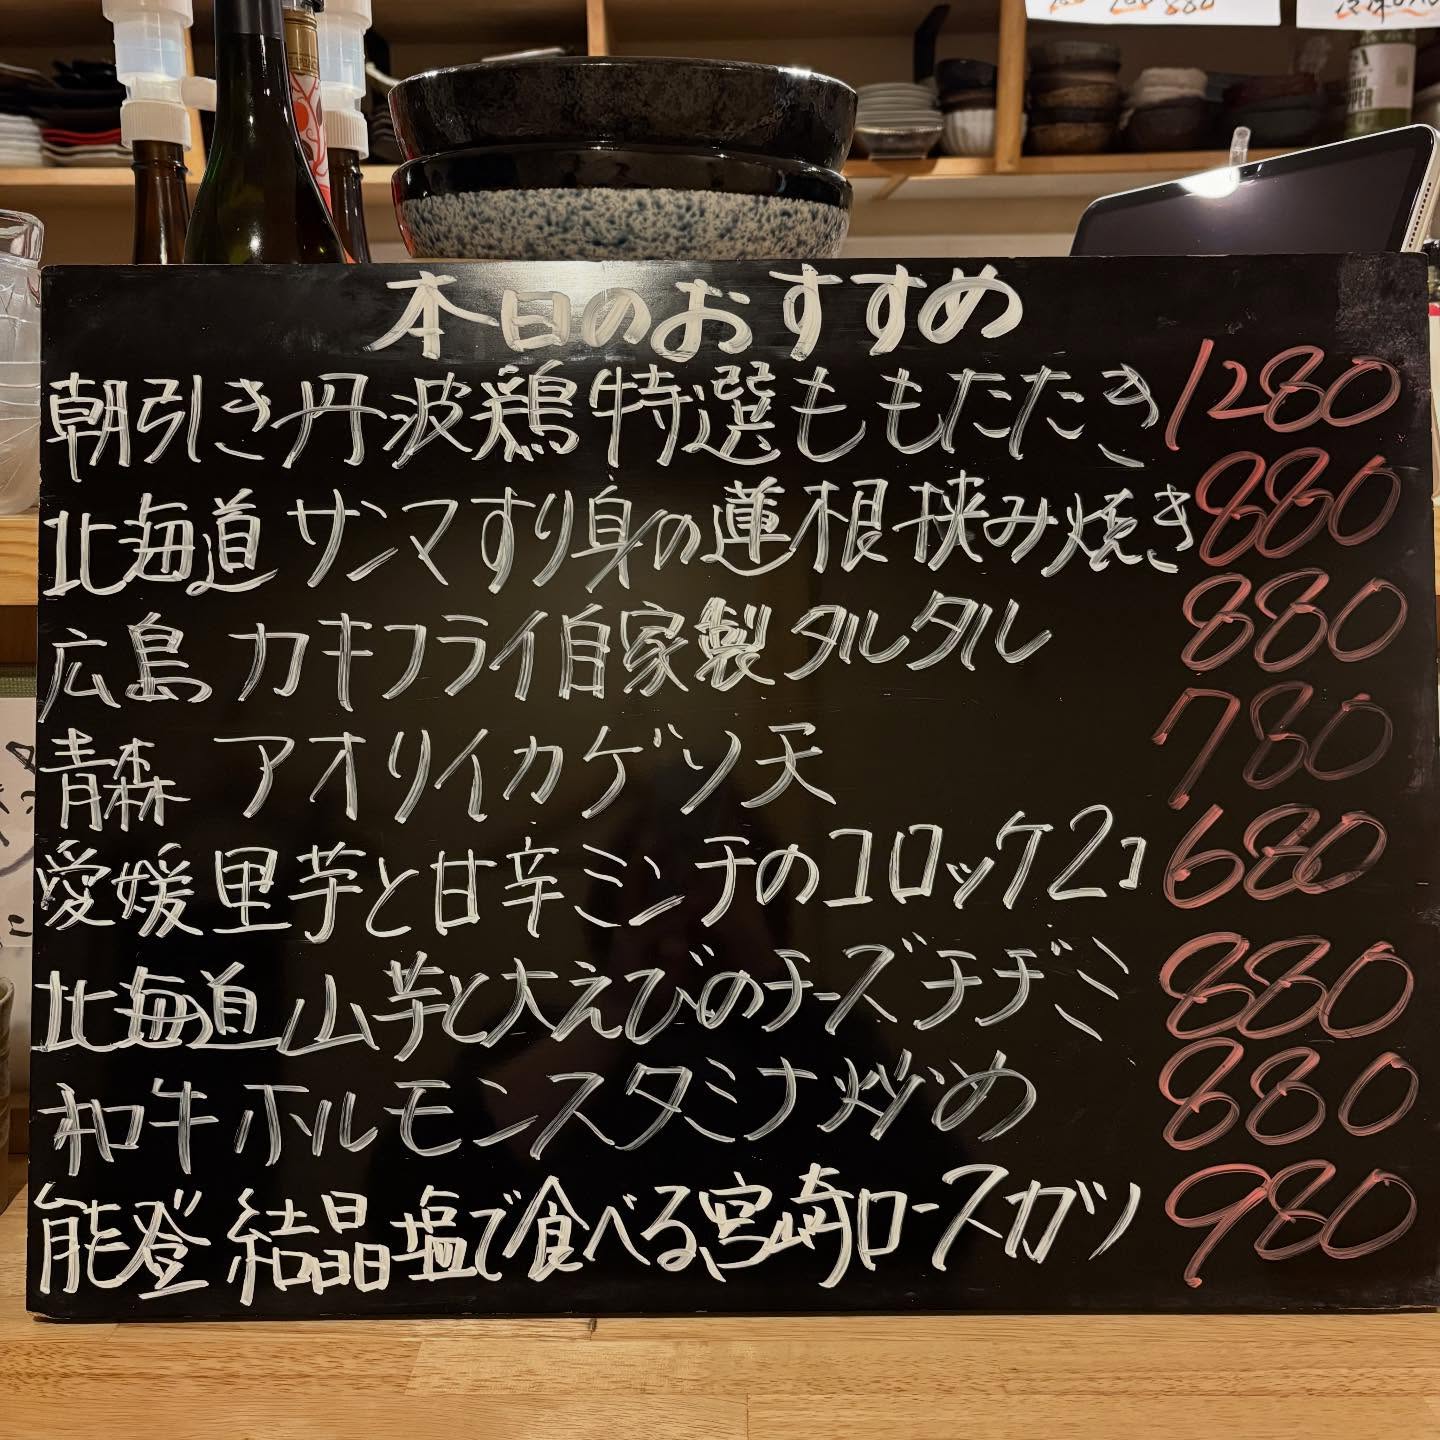 本日のおすすめ
朝引き丹波鶏特選ももたたき 1280
北海道 サンマすり身の蓮根挟み焼き 880
広島 カキフライ自家製タルタル 880
青森 アオリイカゲソ天 780
愛媛 里芋と甘辛ミンチのコロッケ2コ 680
北海道 山芋と大えびのチーズチヂミ 880
和牛ホルモンスタミナ炒め 880
能登 結晶塩で食べる宮崎ロースカツ 980